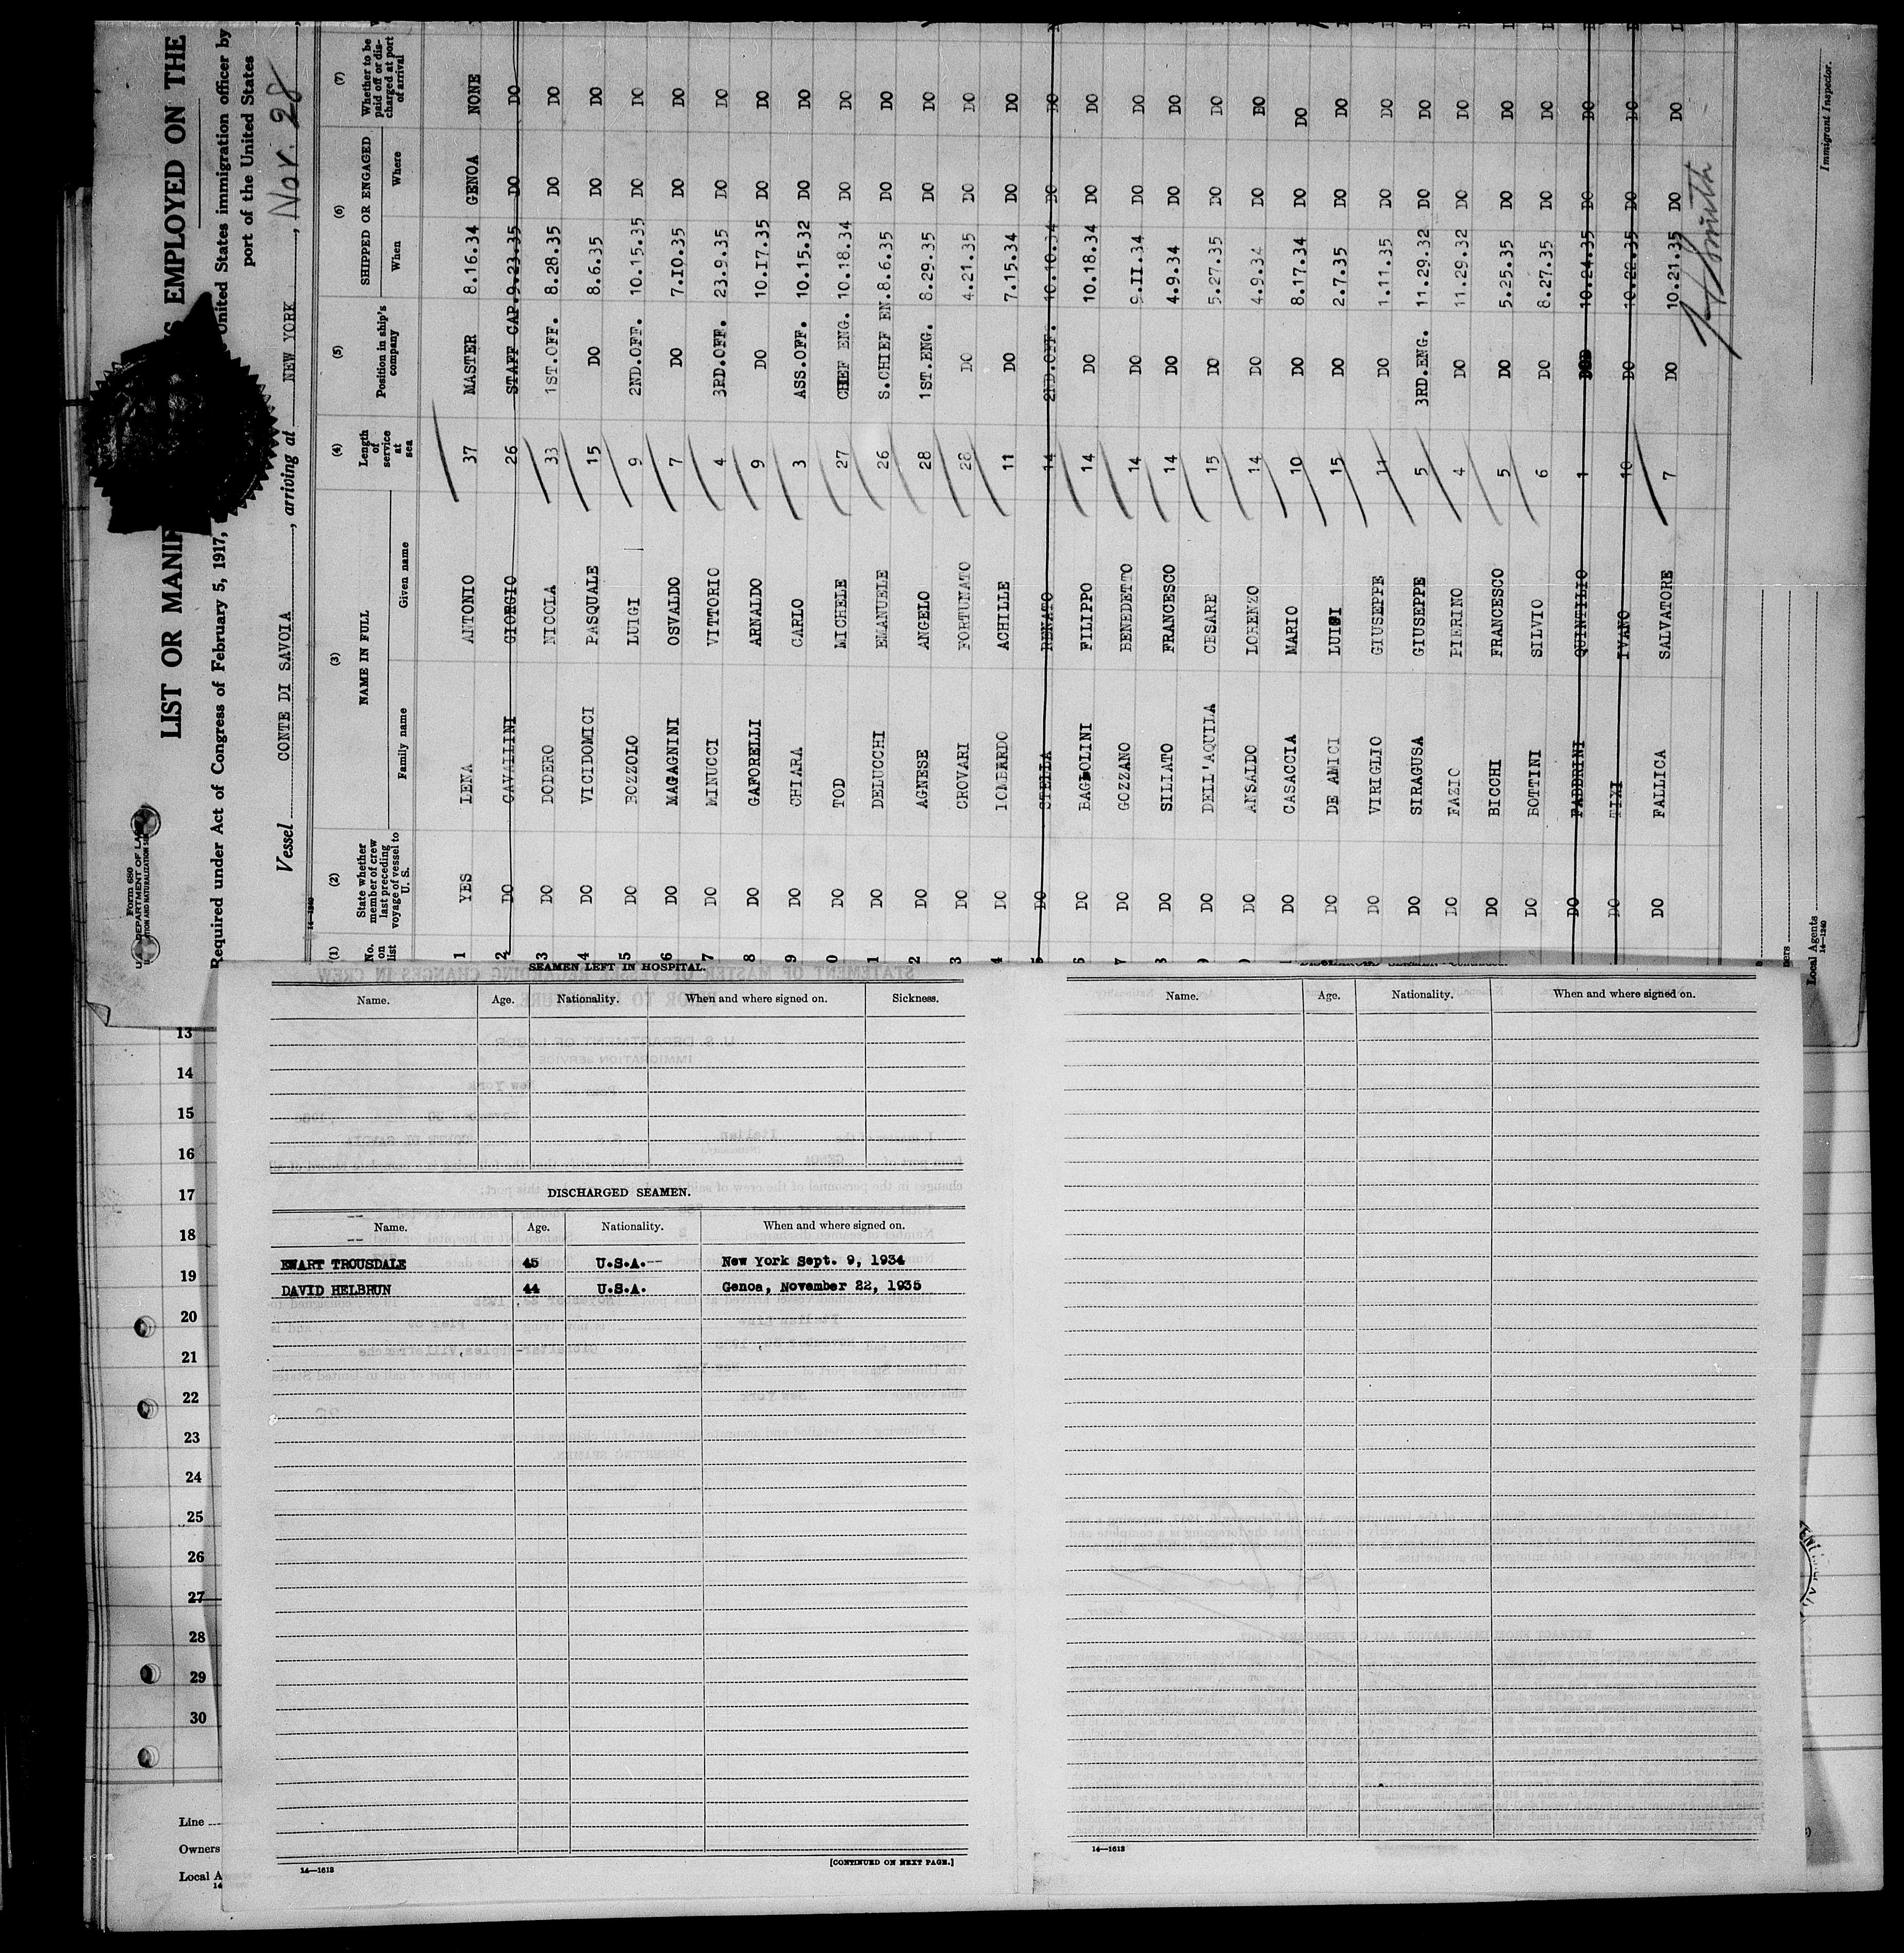 Form 680
U. S. DEPARTMENT OF LA
LIST OR MANIF EMPLOYED ON THE
Required under Act of Congress of February 5, 1917, United States immigration officer by
port of the United States
Vessel CONTE DI SAVOIA, arriving at NEW YORK, Nov. 28
(1) (2) (3) (4) (5) (6) (7)
No. on list State whether member of crew last preceding voyage of vessel to U. S. NAME IN FULL Family name Given name Length of service at sea Position in ship's company SHIPPED OR ENGAGED When Where Whether to be paid off or discharged at port of arrival
1 YES LENA ANTONIO 37 MASTER 8.16.34 GENOA NONE
2 DO CAVALLINI GIORGIO 26 STAFF CAP. 9.23.35 DO DO
3 DO DODERO NICOLA 33 1ST.OFF. 8.28.35 DO DO
4 DO VICIDOMICI PASQUALE 15 DO 8.6.35 DO DO
5 DO BOZZOLO LUIGI 9 2ND.OFF. 10.15.35 DO DO
6 DO MAGAGNINI OSVALDO 7 DO 7.10.35 DO DO
7 DO MINUCCI VITTORIO 4 3RD.OFF. 23.9.35 DO DO
8 DO GAFORELLI ARNALDO 9 DO 10.17.35 DO DO
9 DO CHIARA CARLO 3 ASS.OFF. 10.15.32 DO DO
0 DO TOD MICHELE 27 CHIEF ENG. 10.18.34 DO DO
1 DO DELUCCHI EMANUELE 26 S.CHIEF EN. 8.6.35 DO DO
2 DO AGNESE ANGELO 28 1ST.ENG. 8.29.35 DO DO
3 DO CROVARI FORTUNATO 28 DO 4.21.35 DO DO
4 DO LOMBARDO ACHILLE 11 DO 7.15.34 DO DO
5 DO STELLA RENATO 14 2ND.OFF. 10.10.34 DO DO
6 DO BAGNOLINI FILIPPO 14 DO 10.18.34 DO DO
7 DO GOZZANO BENEDETTO 14 DO 9.11.34 DO DO
8 DO SILLATO FRANCESCO 14 DO 4.9.34 DO DO
9 DO DELL'AQUILA CESARE 15 DO 5.27.35 DO DO
0 DO ANSALDO LORENZO 14 DO 4.9.34 DO DO
DO CASACCIA MARIO 10 DO 8.17.34 DO DO
DO DE AMICI LUIGI 15 DO 2.7.35 DO DO
DO VIRIGLIO GIUSEPPE 11 DO 1.11.35 DO DO
DO SIRAGUSA GIUSEPPE 5 3RD.ENG. 11.29.32 DO DO
DO FAZIO PIERINO 4 DO 11.29.32 DO DO
DO BICCHI FRANCESCO 5 DO 5.25.35 DO DO
DO BOTTINI SILVIO 6 DO 8.27.35 DO DO
DO FABBRINI QUINTILIO 1 DO 10.24.35 DO DO
DO TIXI IVANO 10 DO 10.26.35 DO DO
DO FALLICA SALVATORE 7 DO 10.21.35 DO DO
Immigrant Inspector.
Local Agents
14—1240
SEAMEN LEFT IN HOSPITAL.
Name. Age. Nationality. When and where signed on. Sickness.
DISCHARGED SEAMEN.
Name. Age. Nationality. When and where signed on.
EWART TROUSDALE 45 U.S.A. New York Sept. 9, 1934
DAVID HELBRUN 44 U.S.A. Genoa, November 22, 1935
14—1613
[CONTINUED ON NEXT PAGE.]
Name. Age. Nationality. When and where signed on.
14—1613
13
14
15
16
17
18
19
20
21
22
23
24
25
26
27
28
29
30
Line
Owners
Local A